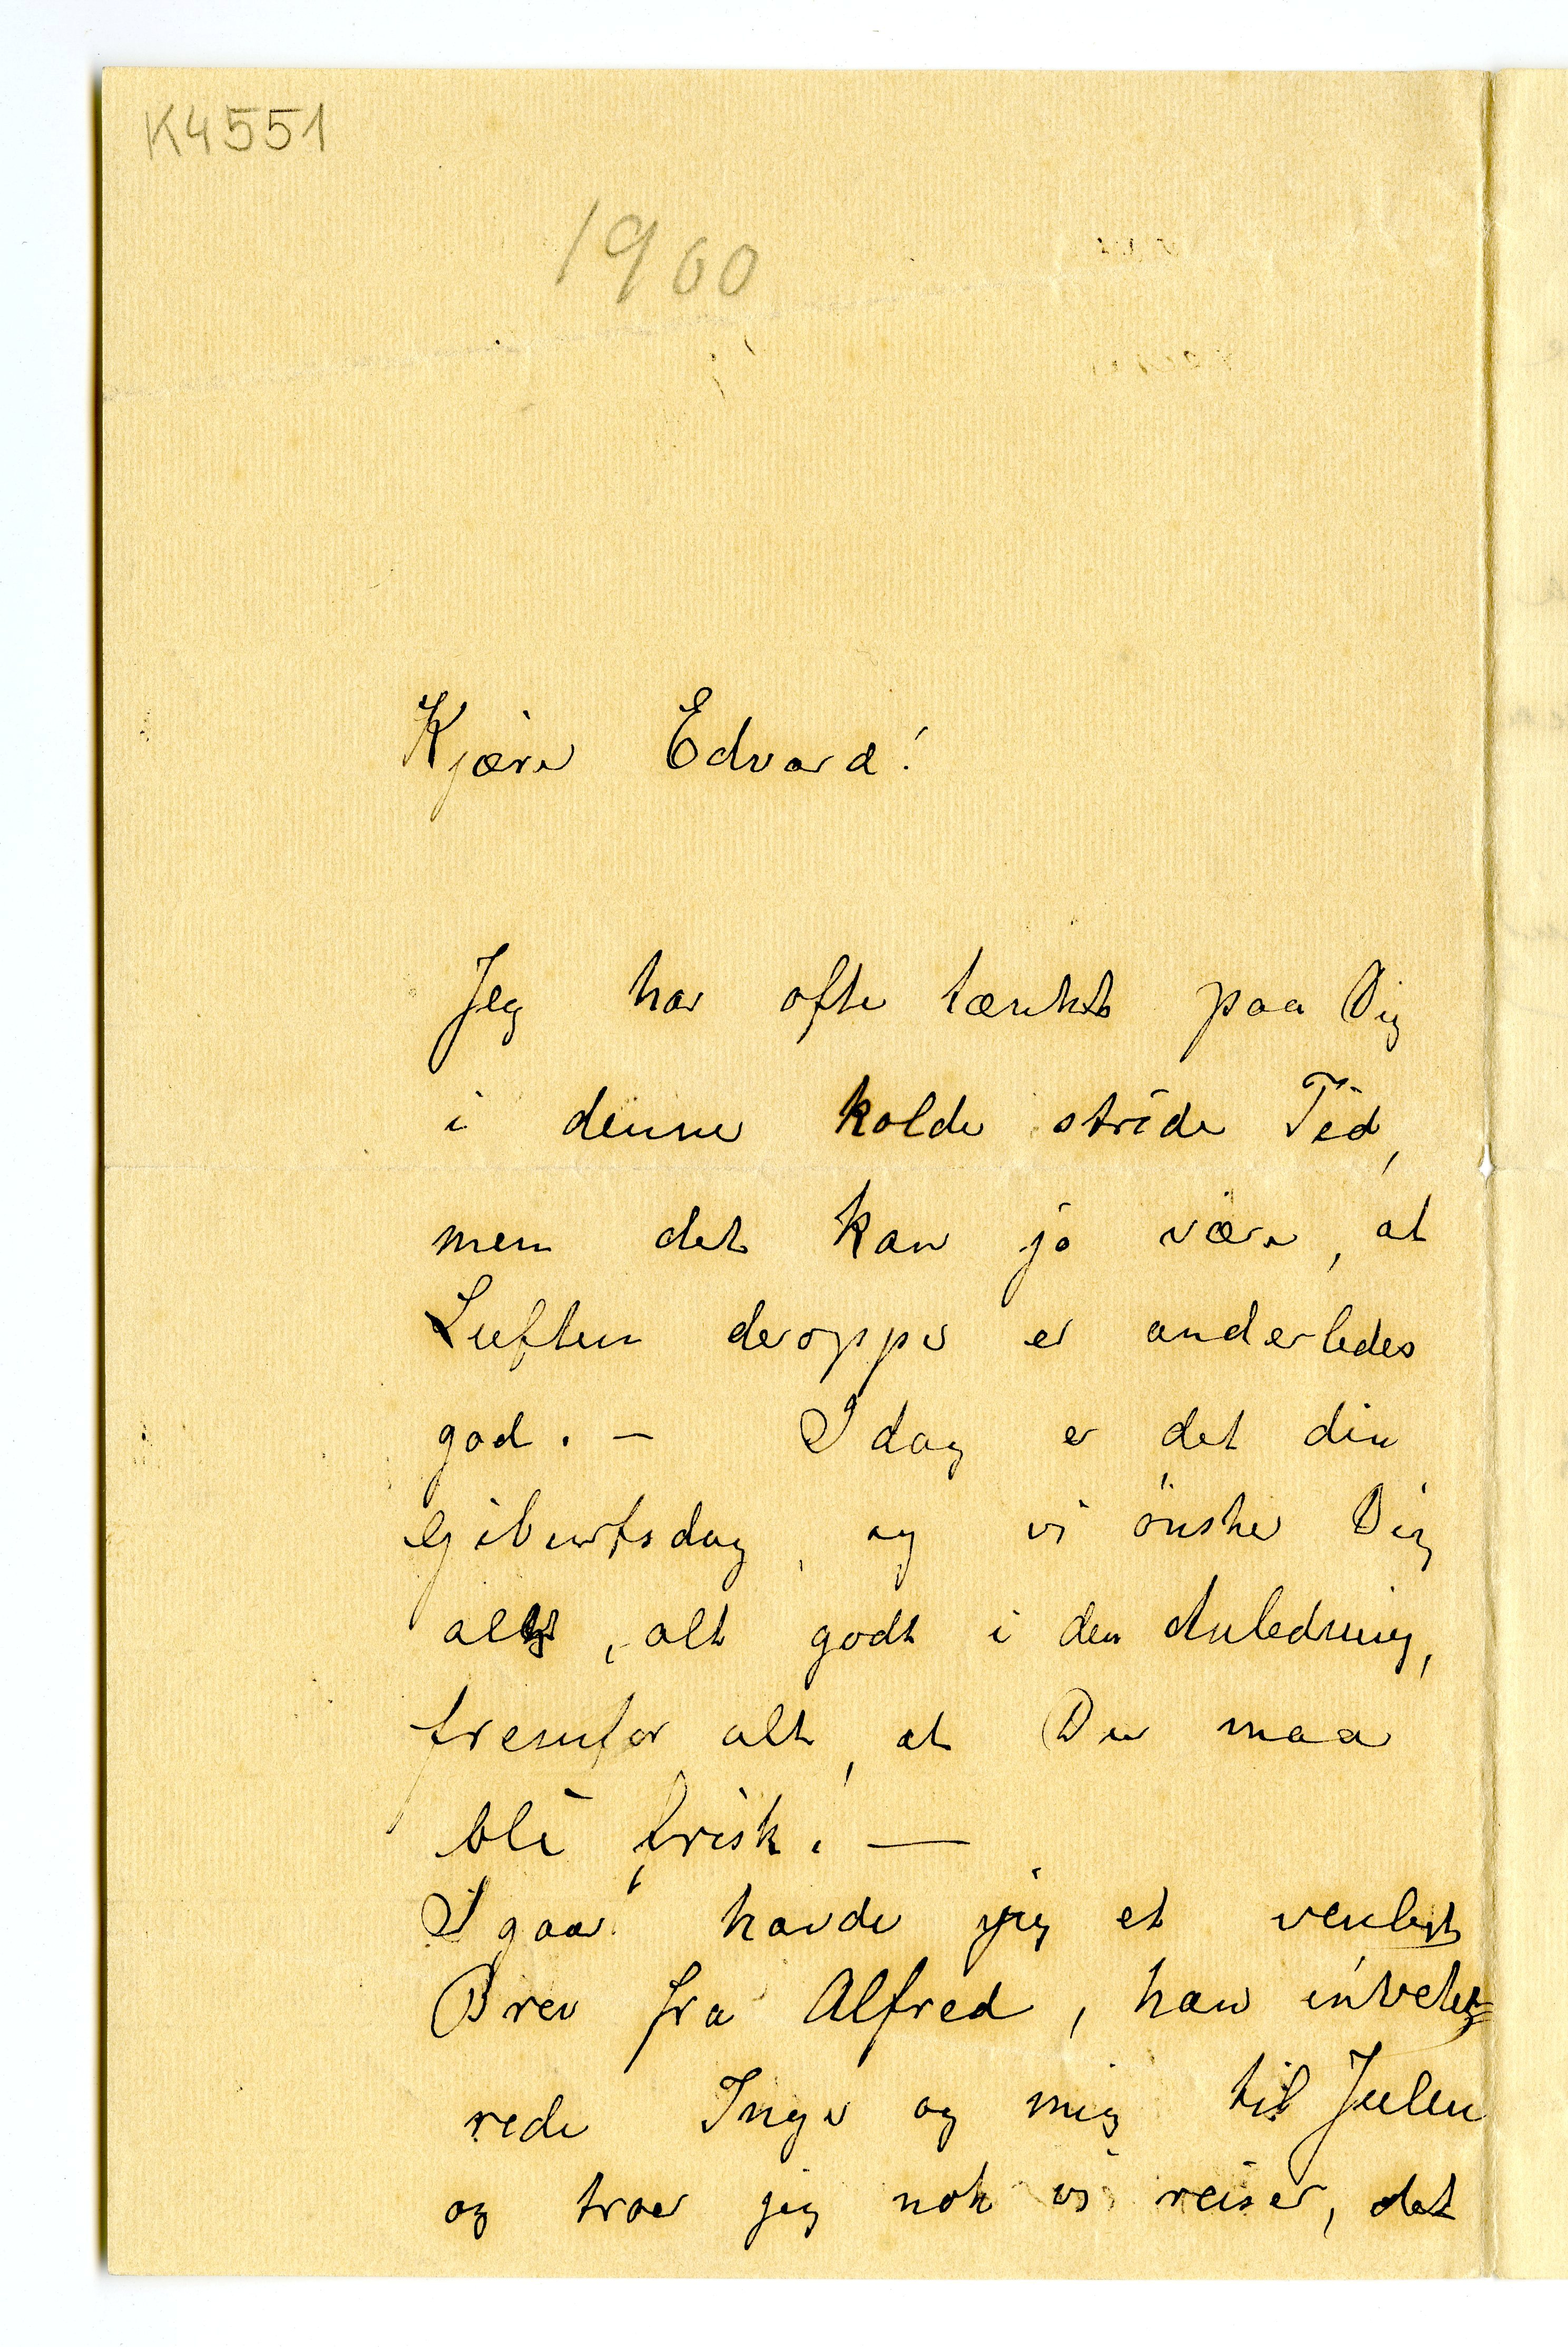 K4551
1900
Kjære Edvard!
Jeg har ofte tænkt paa Dig
i denne kolde stride Tid,
men det kan jo være, at
Luften deroppe er anderledes
god. – I dag er det din
Geburtsdag, og vi önsker Dig
alt, alt godt i den Anledning,
fremfor alt, at Du maa
bli frisk. —
I gaar havde jeg et venligt
Brev fra Alfred, han invete=
rede Inge og mig til Julen
og troer jeg nok vi reiser, det